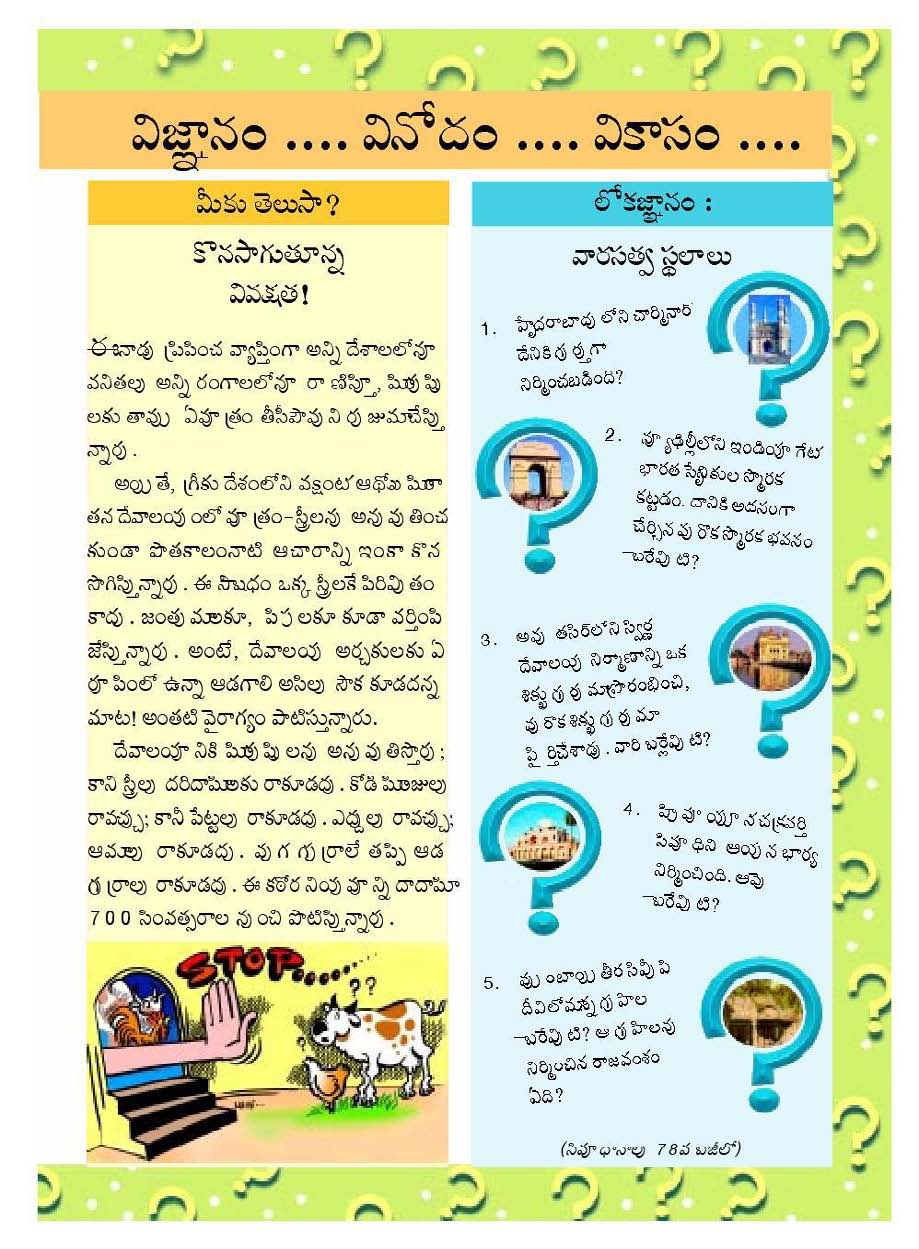 విజ్ఞానం .... వినోదం .... వికాసం ....
మీకు తెలుసా?
కొనసాగుతూన్న
వివక్షత!
ఈనాడు ప్రపంచ వ్యాప్తంగా అన్ని దేశాలలోనూ
వనితలు అన్ని రంగాలలోనూ రాణిస్తూ, పురుషు
లకు తాము ఏమాత్రం తీసిపోమని రుజుమాచేస్తు
న్నారు.
అయితే, గ్రీకు దేశంలోని
తన దేవాలయంలో మాత్రం-స్త్రీలను అనుమతించ
కుండా పాతకాలంనాటి ఆచారాన్ని ఇంకా కొన
సాగిస్తున్నారు. ఈ నిషేధం ఒక్క స్త్రీలకే పరిమితం
కాదు. జంతువులకూ, పక్షులకూ కూడా వర్తింప
జేస్తున్నారు. అంటే, దేవాలయ అర్చకులకు ఏ
రూపంలో ఉన్నా ఆడగాలి అసలు సోక కూడదన్న
మాట! అంతటి వైరాగ్యం పాటిస్తున్నారు.
దేవాలయానికి పురుషులను అనుమతిస్తారు;
కాని స్త్రీలు దరిదాపులకు రాకూడదు. కోడి పుంజులు
రావచ్చు; కానీ పెట్టలు రాకూడదు. ఎద్దులు రావచ్చు;
ఆవులు రాకూడదు. మగ గుర్రాలే తప్ప ఆడ
గుర్రాలు రాకూడదు. ఈ కఠోర నియమాన్ని దాదాపూ
700 సంవత్సరాల నుంచి పాటిస్తున్నారు.
STOP.......
??
లోకజ్ఞానం :
వారసత్వ స్థలాలు
1. హైదరాబాదులోని చార్మినార్
దేనికి గుర్తుగా
నిర్మించబడింది?
2. న్యూఢిల్లీలోని ఇండియా గేట్
భారత సైనికుల స్మారక
కట్టడం. దానికి అదనంగా
చేర్చిన మరొక స్మారక భవనం
పేరేమిటి?
3. అమృతసర్‌లోని స్వర్ణ
దేవాలయ నిర్మాణాన్ని ఒక
శిక్కు గురువు ప్రారంభించి,
మరొక శిక్కు గురువు
పూర్తిచేశాడు. వారి పేర్లేమిటి?
4. హుమాయూన్ చక్రవర్తి
సమాధిని ఆయన భార్య
నిర్మించింది. ఆమె
పేరేమిటి?
5. ముంబాయి తీర సమీప
దీవిలోవున్న గుహల
పేరేమిటి? ఆ గుహలను
నిర్మించిన రాజవంశం
ఏది?
(సమాధానాలు 78వ పేజీలో)